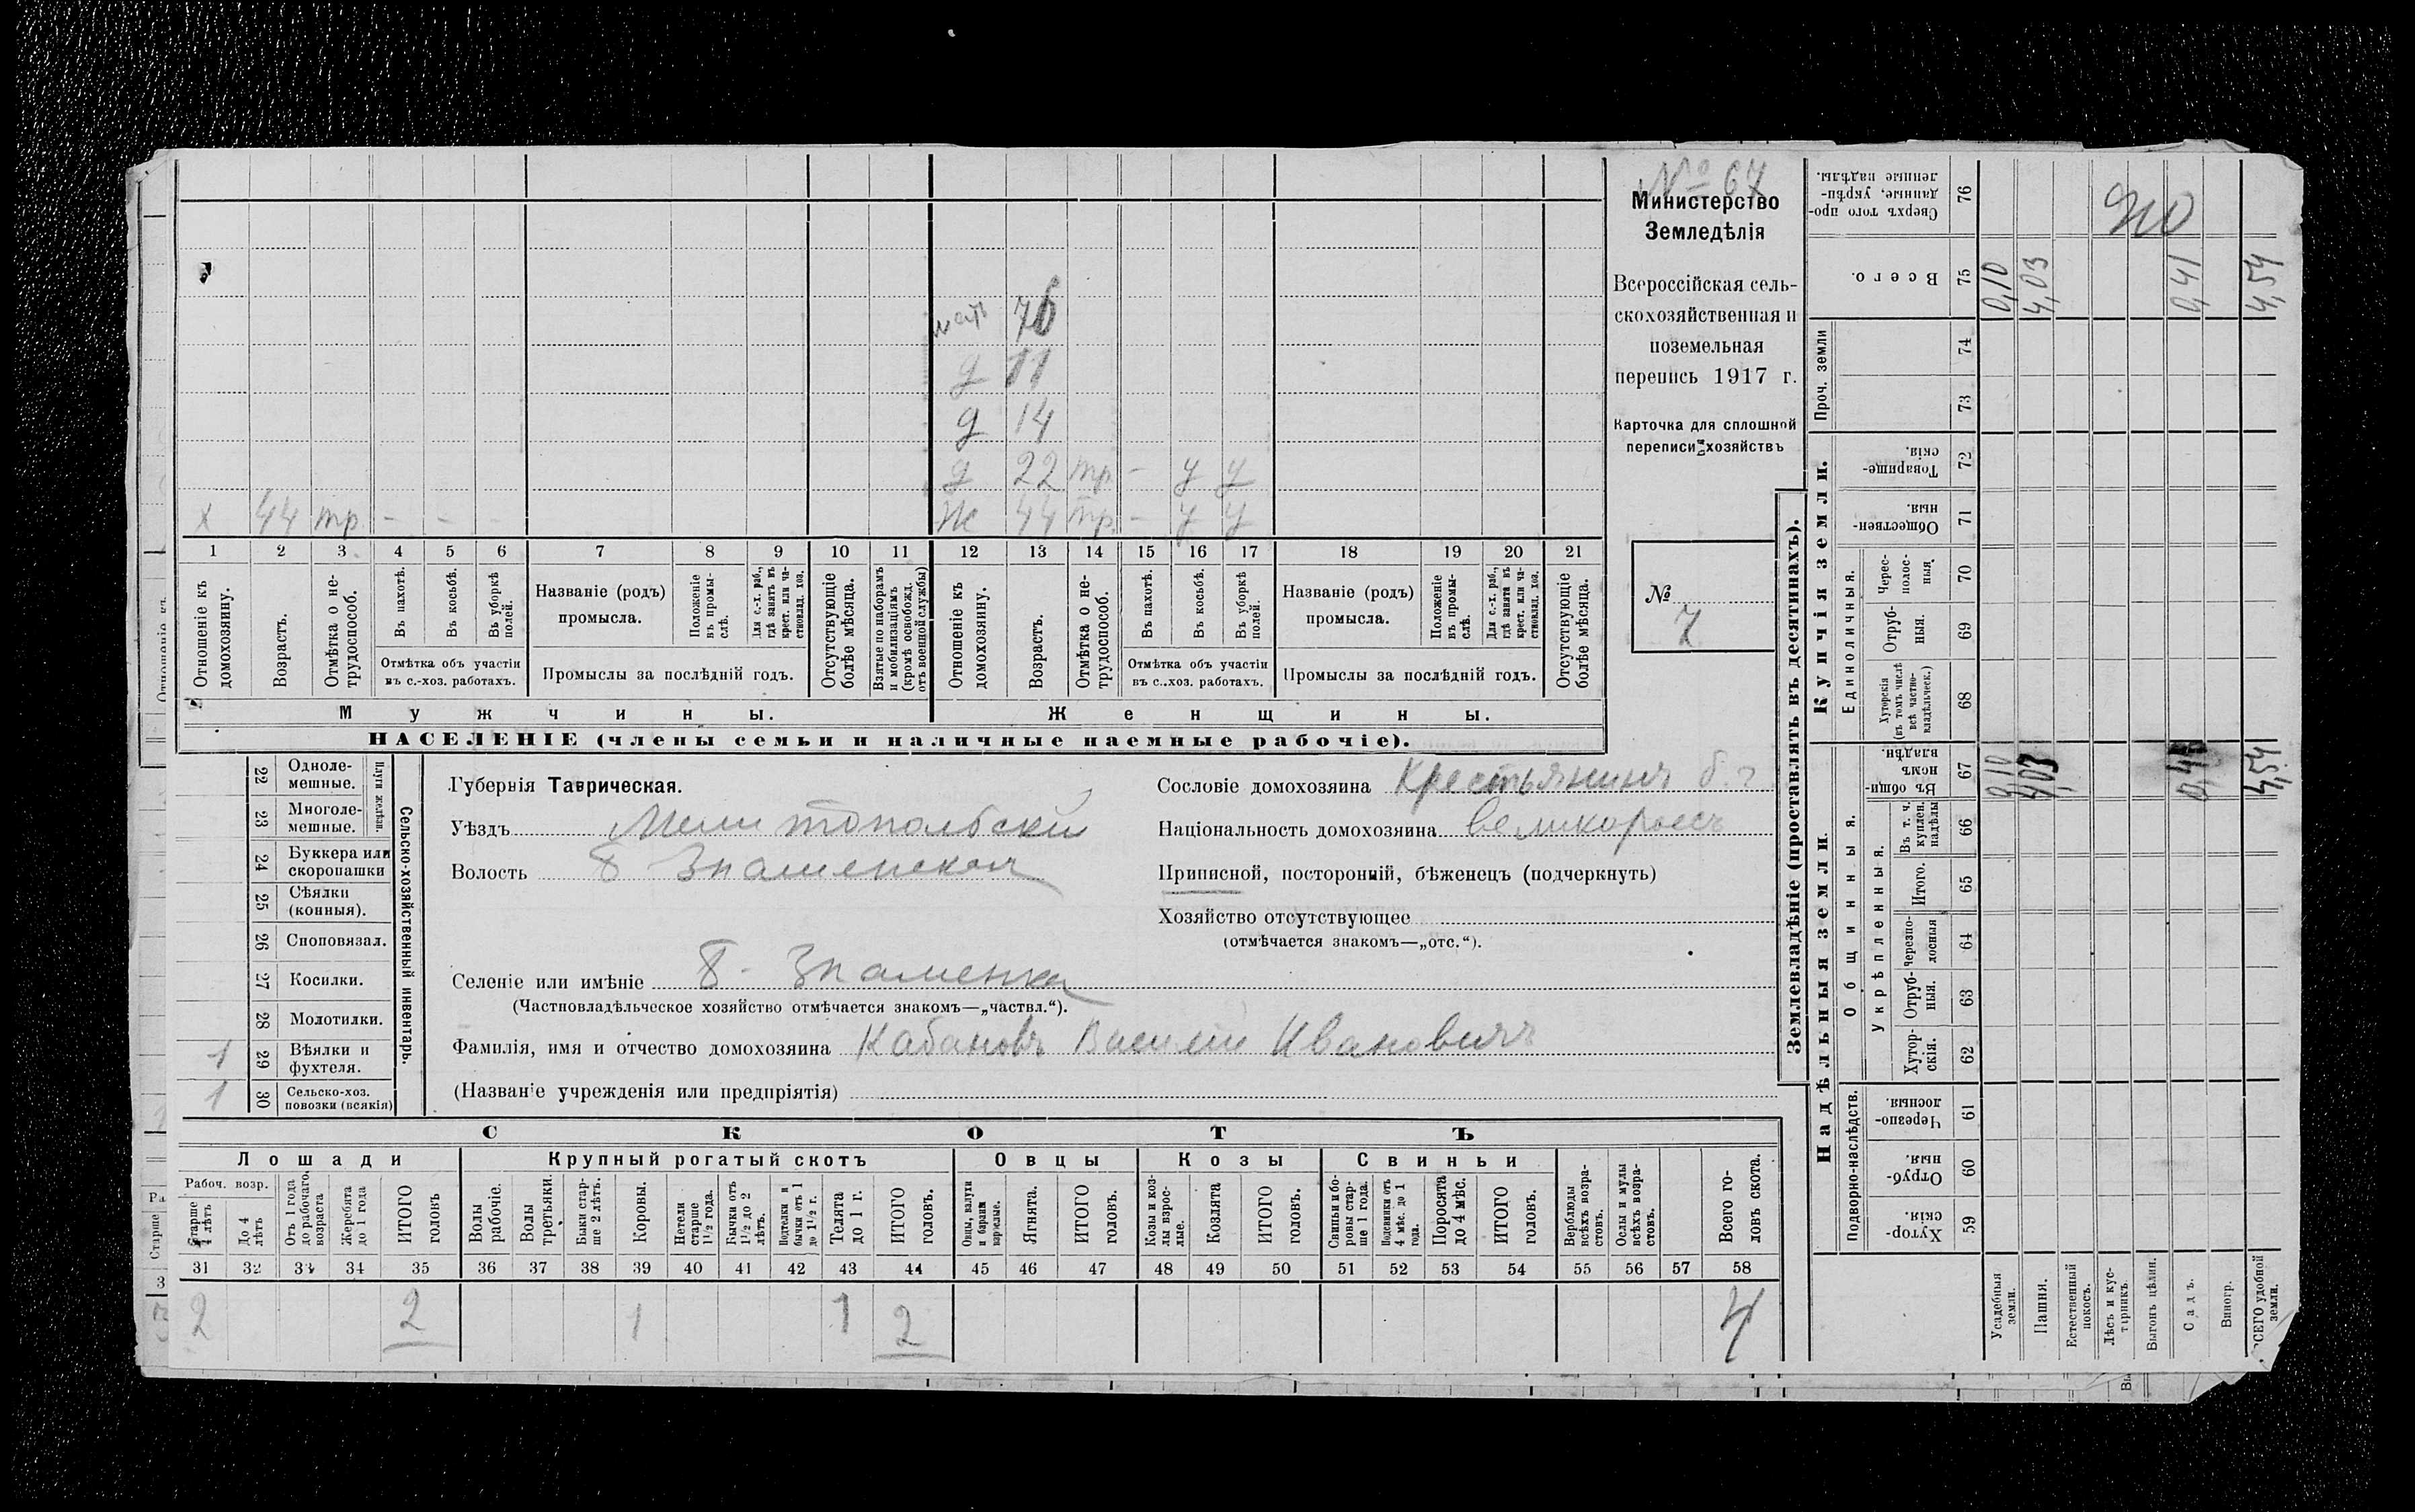 № 67
Министерство
Земледѣлія
Всероссійская сель-
скохозяйственная и
поземельная
перепись 1917 г.
Карточка для сплошной
переписи хозяйствъ
№
7
мать 76
д 11
д 14
д 22 тр - у у
х 44 тр - - - ж 44 тр - у у
1 2 3 4 5 6 7 8 9 10 11 12 13 14 15 16 17 18 19 20 21
Отношеніе къ домохозяину.
Возрастъ.
Отмѣтка о не-трудоспособ.
Въ пахотѣ.
Въ косьбѣ.
Въ уборкѣ полей.
Отмѣтка объ участіи
въ с.-хоз. работахъ.
Названіе (родъ)
промысла.
Положеніе въ промы-слѣ.
Для с.-х. раб., гдѣ занятъ въ крест. или ча-стновлад. хоз.
Промыслы за послѣдній годъ.
Отсутствующіе болѣе мѣсяца.
Взятые по наборамъ и мобилизаціямъ (кромѣ освобожд. отъ военной службы)
Отношеніе къ домохозяину.
Возрастъ.
Отмѣтка о не-трудоспособ.
Въ пахотѣ.
Въ косьбѣ.
Въ уборкѣ полей.
Отмѣтка объ участіи
въ с.-хоз. работахъ.
Названіе (родъ)
промысла.
Положеніе въ промы-слѣ.
Для с.-х. раб., гдѣ занята въ крест. или ча-стновлад. хоз.
Промыслы за послѣдній годъ.
Отсутствующіе болѣе мѣсяца.
Мужчины. Женщины.
НАСЕЛЕНІЕ (члены семьи и наличные наемные рабочіе).
Сельско-хозяйственный инвентарь.
Плуги желѣзн.
22 Одноле-мешные.
23 Многоле-мешные.
24 Буккера или скоропашки
25 Сѣялки (конныя).
26 Сноповязал.
27 Косилки.
28 Молотилки.
1 29 Вѣялки и фухтеля.
1 30 Сельско-хоз. повозки (всякія)
Губернія Таврическая.
Уѣздъ Мелитопольскій
Волость Б Знаменская
Селеніе или имѣніе Б. Знаменка
(Частновладѣльческое хозяйство отмѣчается знакомъ—„частвл.“).
Фамилія, имя и отчество домохозяина Кабановъ Василій Ивановичъ
(Названіе учрежденія или предпріятія)
Сословіе домохозяина Крестьянинъ
Національность домохозяина великороссъ
Приписной, посторонній, бѣженецъ (подчеркнуть)
Хозяйство отсутствующее
(отмѣчается знакомъ—„отс.“).
СКОТЪ
Лошади Крупный рогатый скотъ Овцы Козы Свиньи
Рабоч. возр.
Старше 4 лѣтъ
До 4 лѣтъ
Отъ 1 года до рабочаго возраста
Жеребята до 1 года
ИТОГО головъ
Волы рабочіе.
Волы третьяки.
Быки стар-ше 2 лѣтъ.
Коровы.
Нетели старше 1½ года.
Бычки отъ 1½ до 2 лѣтъ.
Подтелки и бычки отъ 1 до 1½ г.
Телята до 1 г.
ИТОГО головъ.
Овцы, валухи и бараны взрослые.
Ягнята.
ИТОГО головъ.
Козы и коз-лы взрос-лые.
Козлята
ИТОГО головъ.
Свиньи и бо-ровы стар-ше 1 года.
Подсвинки отъ 4 мѣс. до 1 года.
Поросята до 4 мѣс.
ИТОГО головъ.
Верблюды всѣхъ возра-стовъ.
Ослы и мулы всѣхъ возра-стовъ.
Всего го-ловъ скота.
31 32 33 34 35 36 37 38 39 40 41 42 43 44 45 46 47 48 49 50 51 52 53 54 55 56 57 58
2 2 1 1 2 4
Землевладѣніе (проставлять въ десятинахъ).
Надѣльныя земли.
Купчія земли.
Проч. земли
Подворно-наслѣдств.
Общинныя.
Укрѣпленныя.
Единоличныя.
Сверхъ того про-данные, укрѣп-ленные надѣлы. 76
Всего. 75
74
73
Товарище-скія. 72
Обществен-ныя. 71
Черес-полос-ныя. 70
Отруб-ныя. 69
Хуторскія (въ томъ числѣ всѣ частно-владѣльческ.) 68
Въ общи-номъ владѣн. 67
Въ т. ч. куплен. надѣлы 66
Итого. 65
Черезпо-лосныя 64
Отруб-ныя. 63
Хутор-скія. 62
Черезпо-лосныя. 61
Отруб-ныя. 60
Хутор-скія. 59
Усадебныя земли. 0,10 0,10
Пашня. 4,03 4,03
Естественный покосъ.
Лѣсъ и кус-тарникъ.
Выгонъ цѣлин.
Садъ. 0,41 0,41
Виногр.
ВСЕГО удобной земли. 4,54 4,54